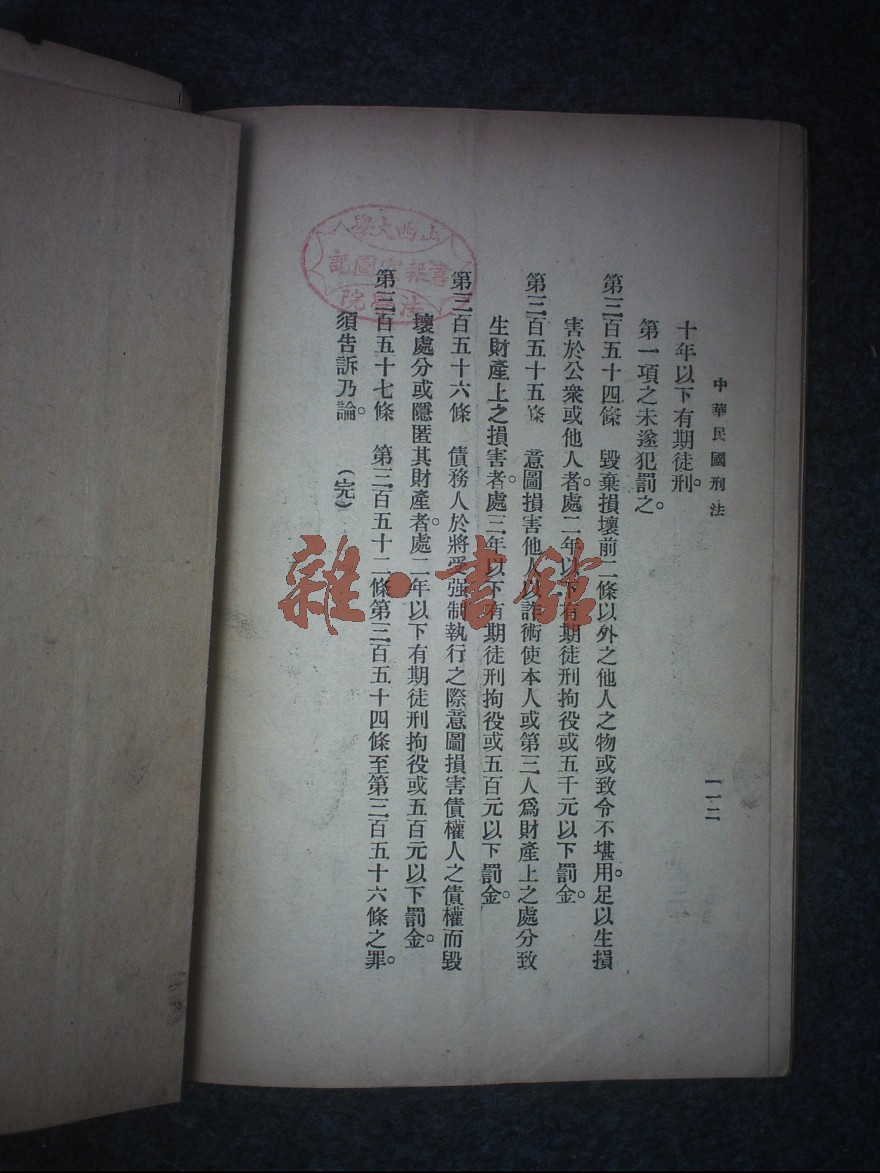 中華民國刑法
一一二
十年以下有期徒刑。
第一項之未遂犯罰之。
第三百五十四條　毀棄損壞前二條以外之他人之物或致令不堪用。足以生損
害於公衆或他人者。處二年以下有期徒刑拘役或五千元以下罰金。
第三百五十五條　意圖損害他人以詐術使本人或第三人爲財產上之處分致
生財產上之損害者。處三年以下有期徒刑拘役或五百元以下罰金。
第三百五十六條　債務人於將受强制執行之際意圖損害債權人之債權而毀
壞處分或隱匿其財產者。處二年以下有期徒刑拘役或五百元以下罰金。
第三百五十七條　第三百五十二條第三百五十四條至第三百五十六條之罪。
須告訴乃論。　（完）
山西大學
書報室圖記
法學院
雜·書館